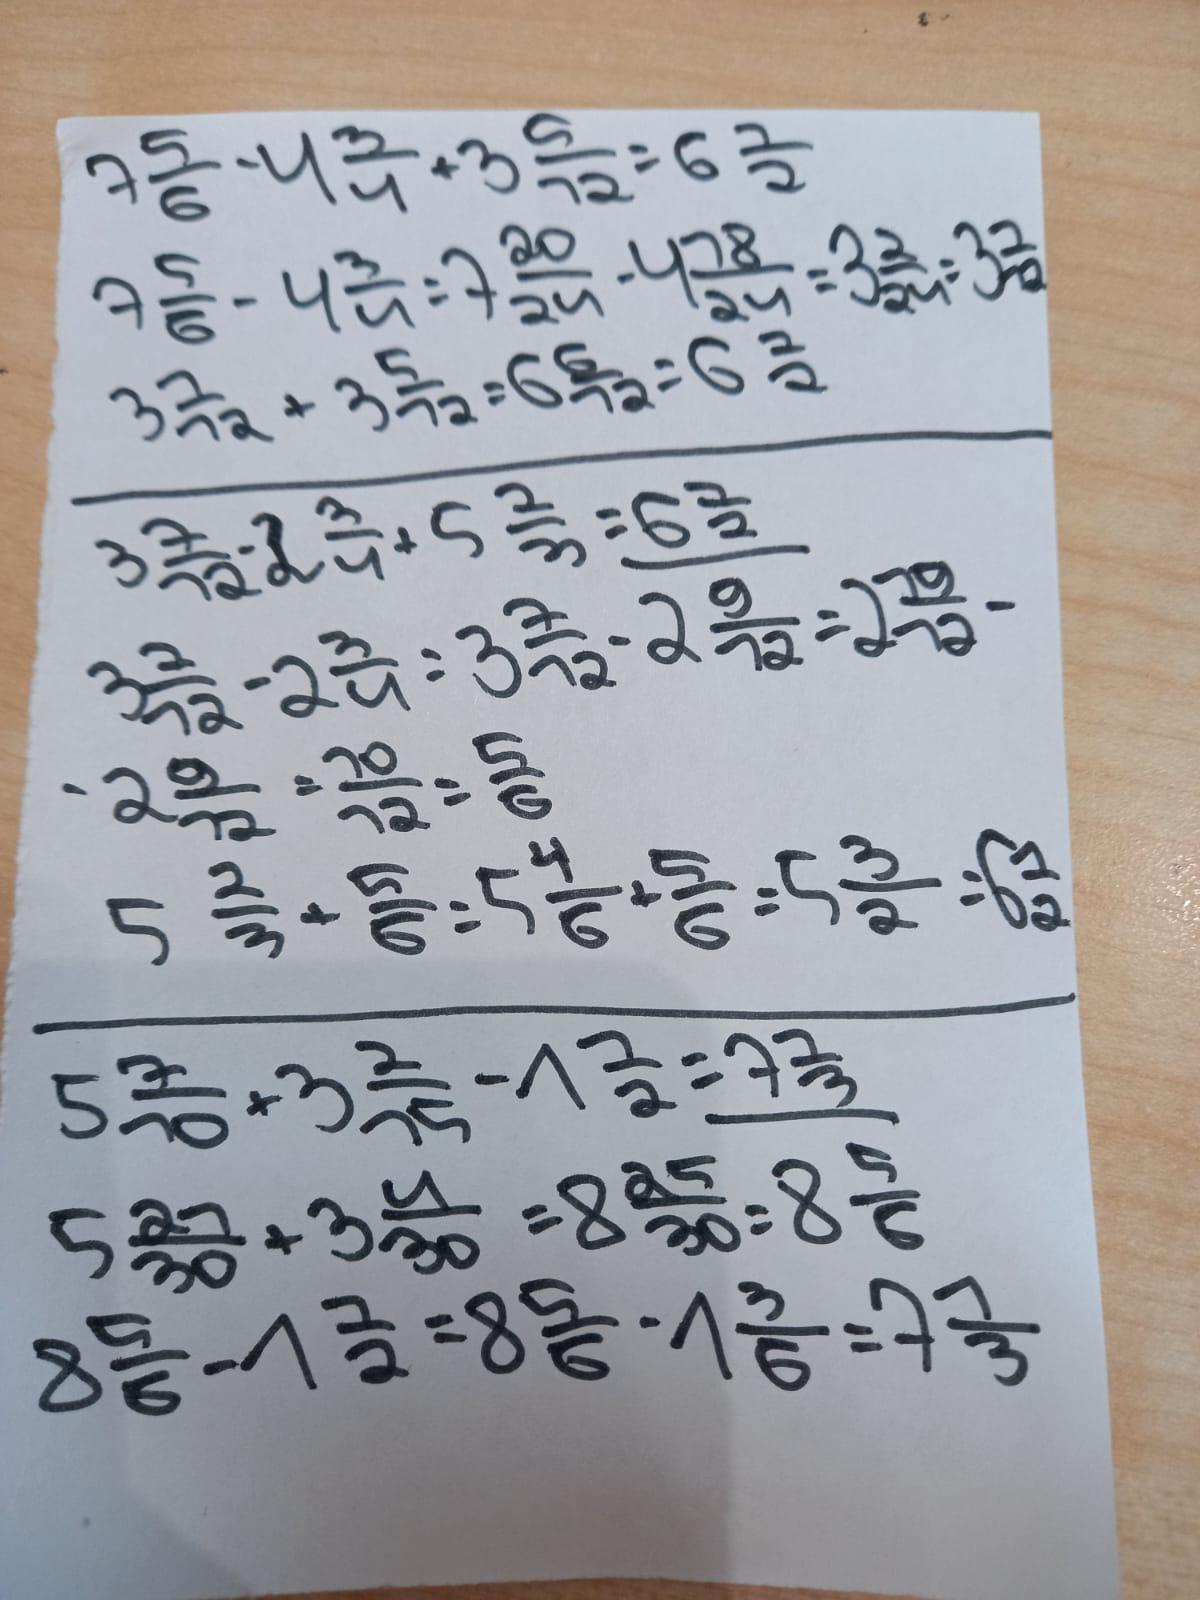 7 5/6 - 4 3/4 + 3 5/12 = 6 1/2
7 5/6 - 4 3/4 = 7 20/24 - 4 18/24 = 3 2/24 = 3 1/12
3 1/12 + 3 5/12 = 6 6/12 = 6 1/2
3 7/12 - 2 3/4 + 5 2/3 = 6 1/2
3 7/12 - 2 3/4 = 3 7/12 - 2 9/12 = 2 19/12 -
- 2 9/12 = 10/12 = 5/6
5 2/3 + 5/6 = 5 4/6 + 5/6 = 5 3/2 = 6 1/2
5 7/10 + 3 2/15 - 1 1/2 = 7 1/3
5 21/30 + 3 4/30 = 8 25/30 = 8 5/6
8 5/6 - 1 1/2 = 8 5/6 - 1 3/6 = 7 1/3